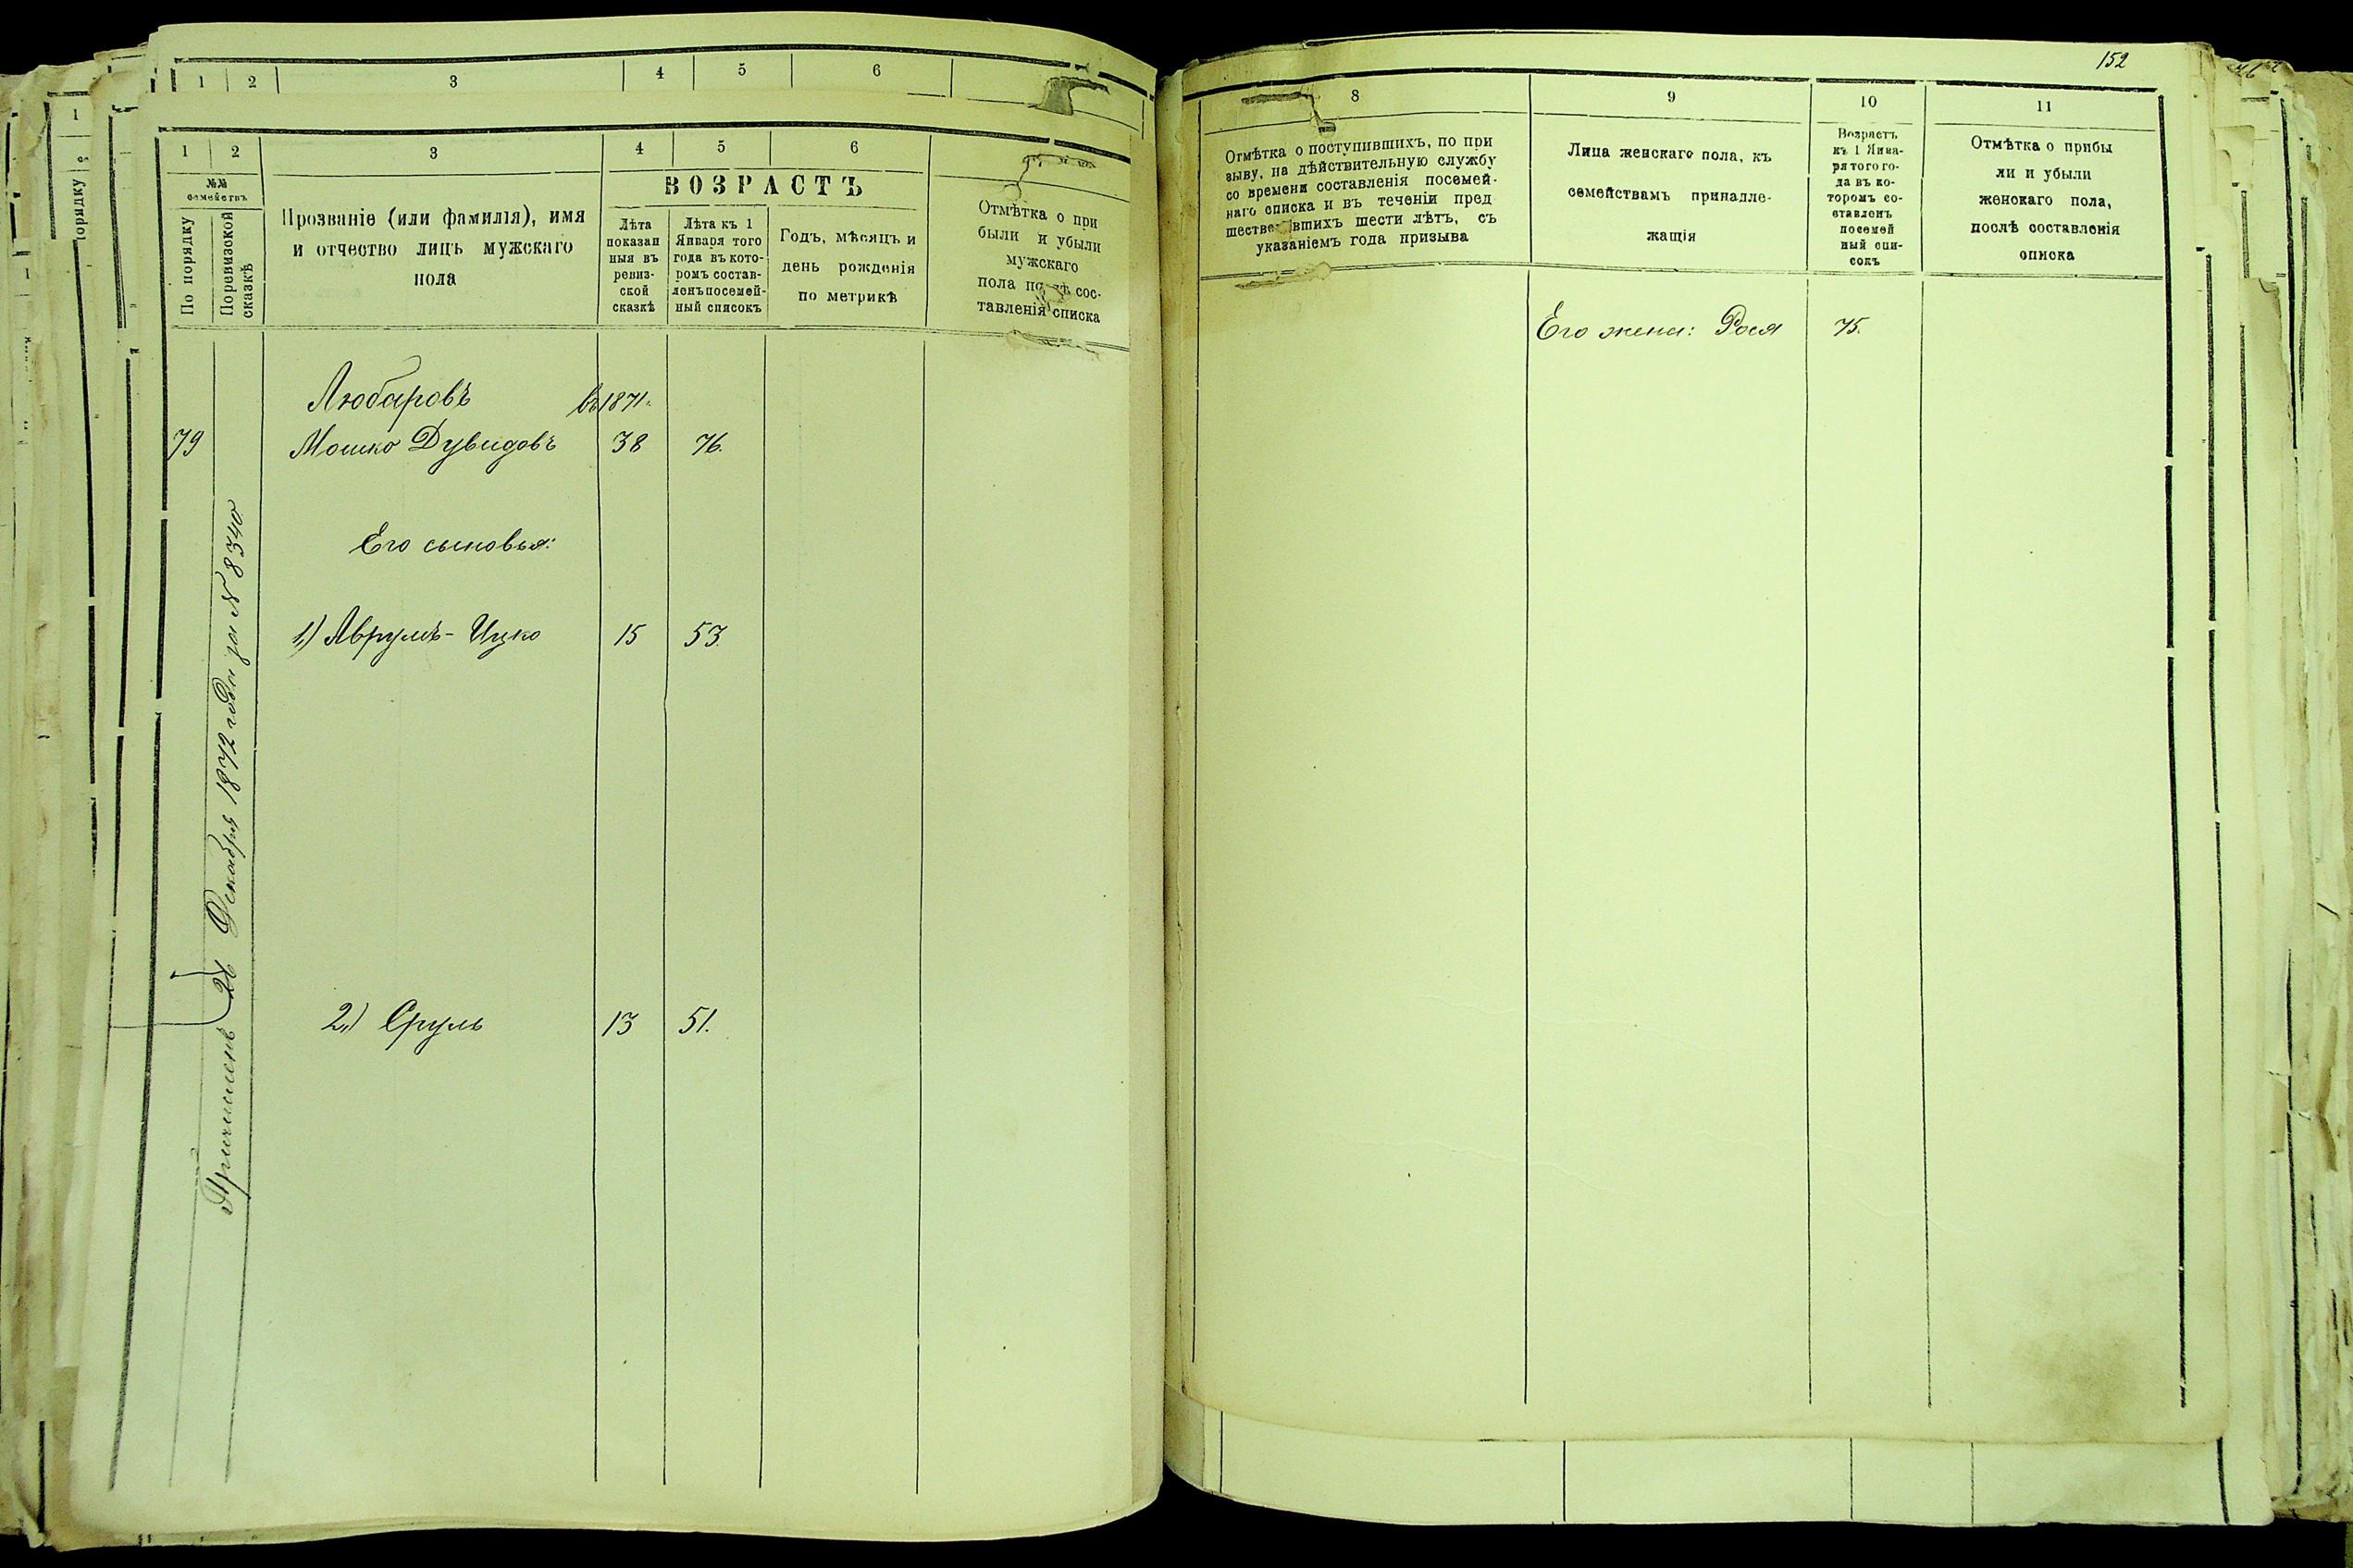 1 2 3 4 5 6
1 2 3 4 5 6
№№ семействъ
По порядку
По ревизской сказкѣ
Прозваніе (или фамилія), имя
и отчество лицъ мужскаго
пола
ВОЗРАСТЪ
Лѣта
показан
ныя въ
ревиз-
ской
сказкѣ
Лѣта къ 1
Января того
года въ кото-
ромъ состав-
ленъ посемей-
ный списокъ
Годъ, мѣсяцъ и
день рожденія
по метрикѣ
Отмѣтка о при
были и убыли
мужскаго
пола сос-
тавленія списка
Любаровъ въ 1871.
79 Мошко Дувидовъ 38 76.
Его сыновья:
1.) Аврумъ-Ицко 15 53.
2.) Сруль 13 51.
Причисленъ 21 Декабря 1872 года за N 8340
152
8 9 10 11
Отмѣтка о поступившихъ, по при
зыву, на дѣйствительную службу
со времени составленія посемей-
наго списка и въ теченіи пред
шествовавшихъ шести лѣтъ, съ
указаніемъ года призыва
Лица женскаго пола, къ
семействамъ принадле-
жащія
Возрастъ
къ 1 Янва-
ря того го-
да въ ко-
торомъ со-
ставленъ
посемей
ный спи-
сокъ
Отмѣтка о прибы
ли и убыли
женскаго пола,
послѣ составленія
списка
Его жена: Рося 75.